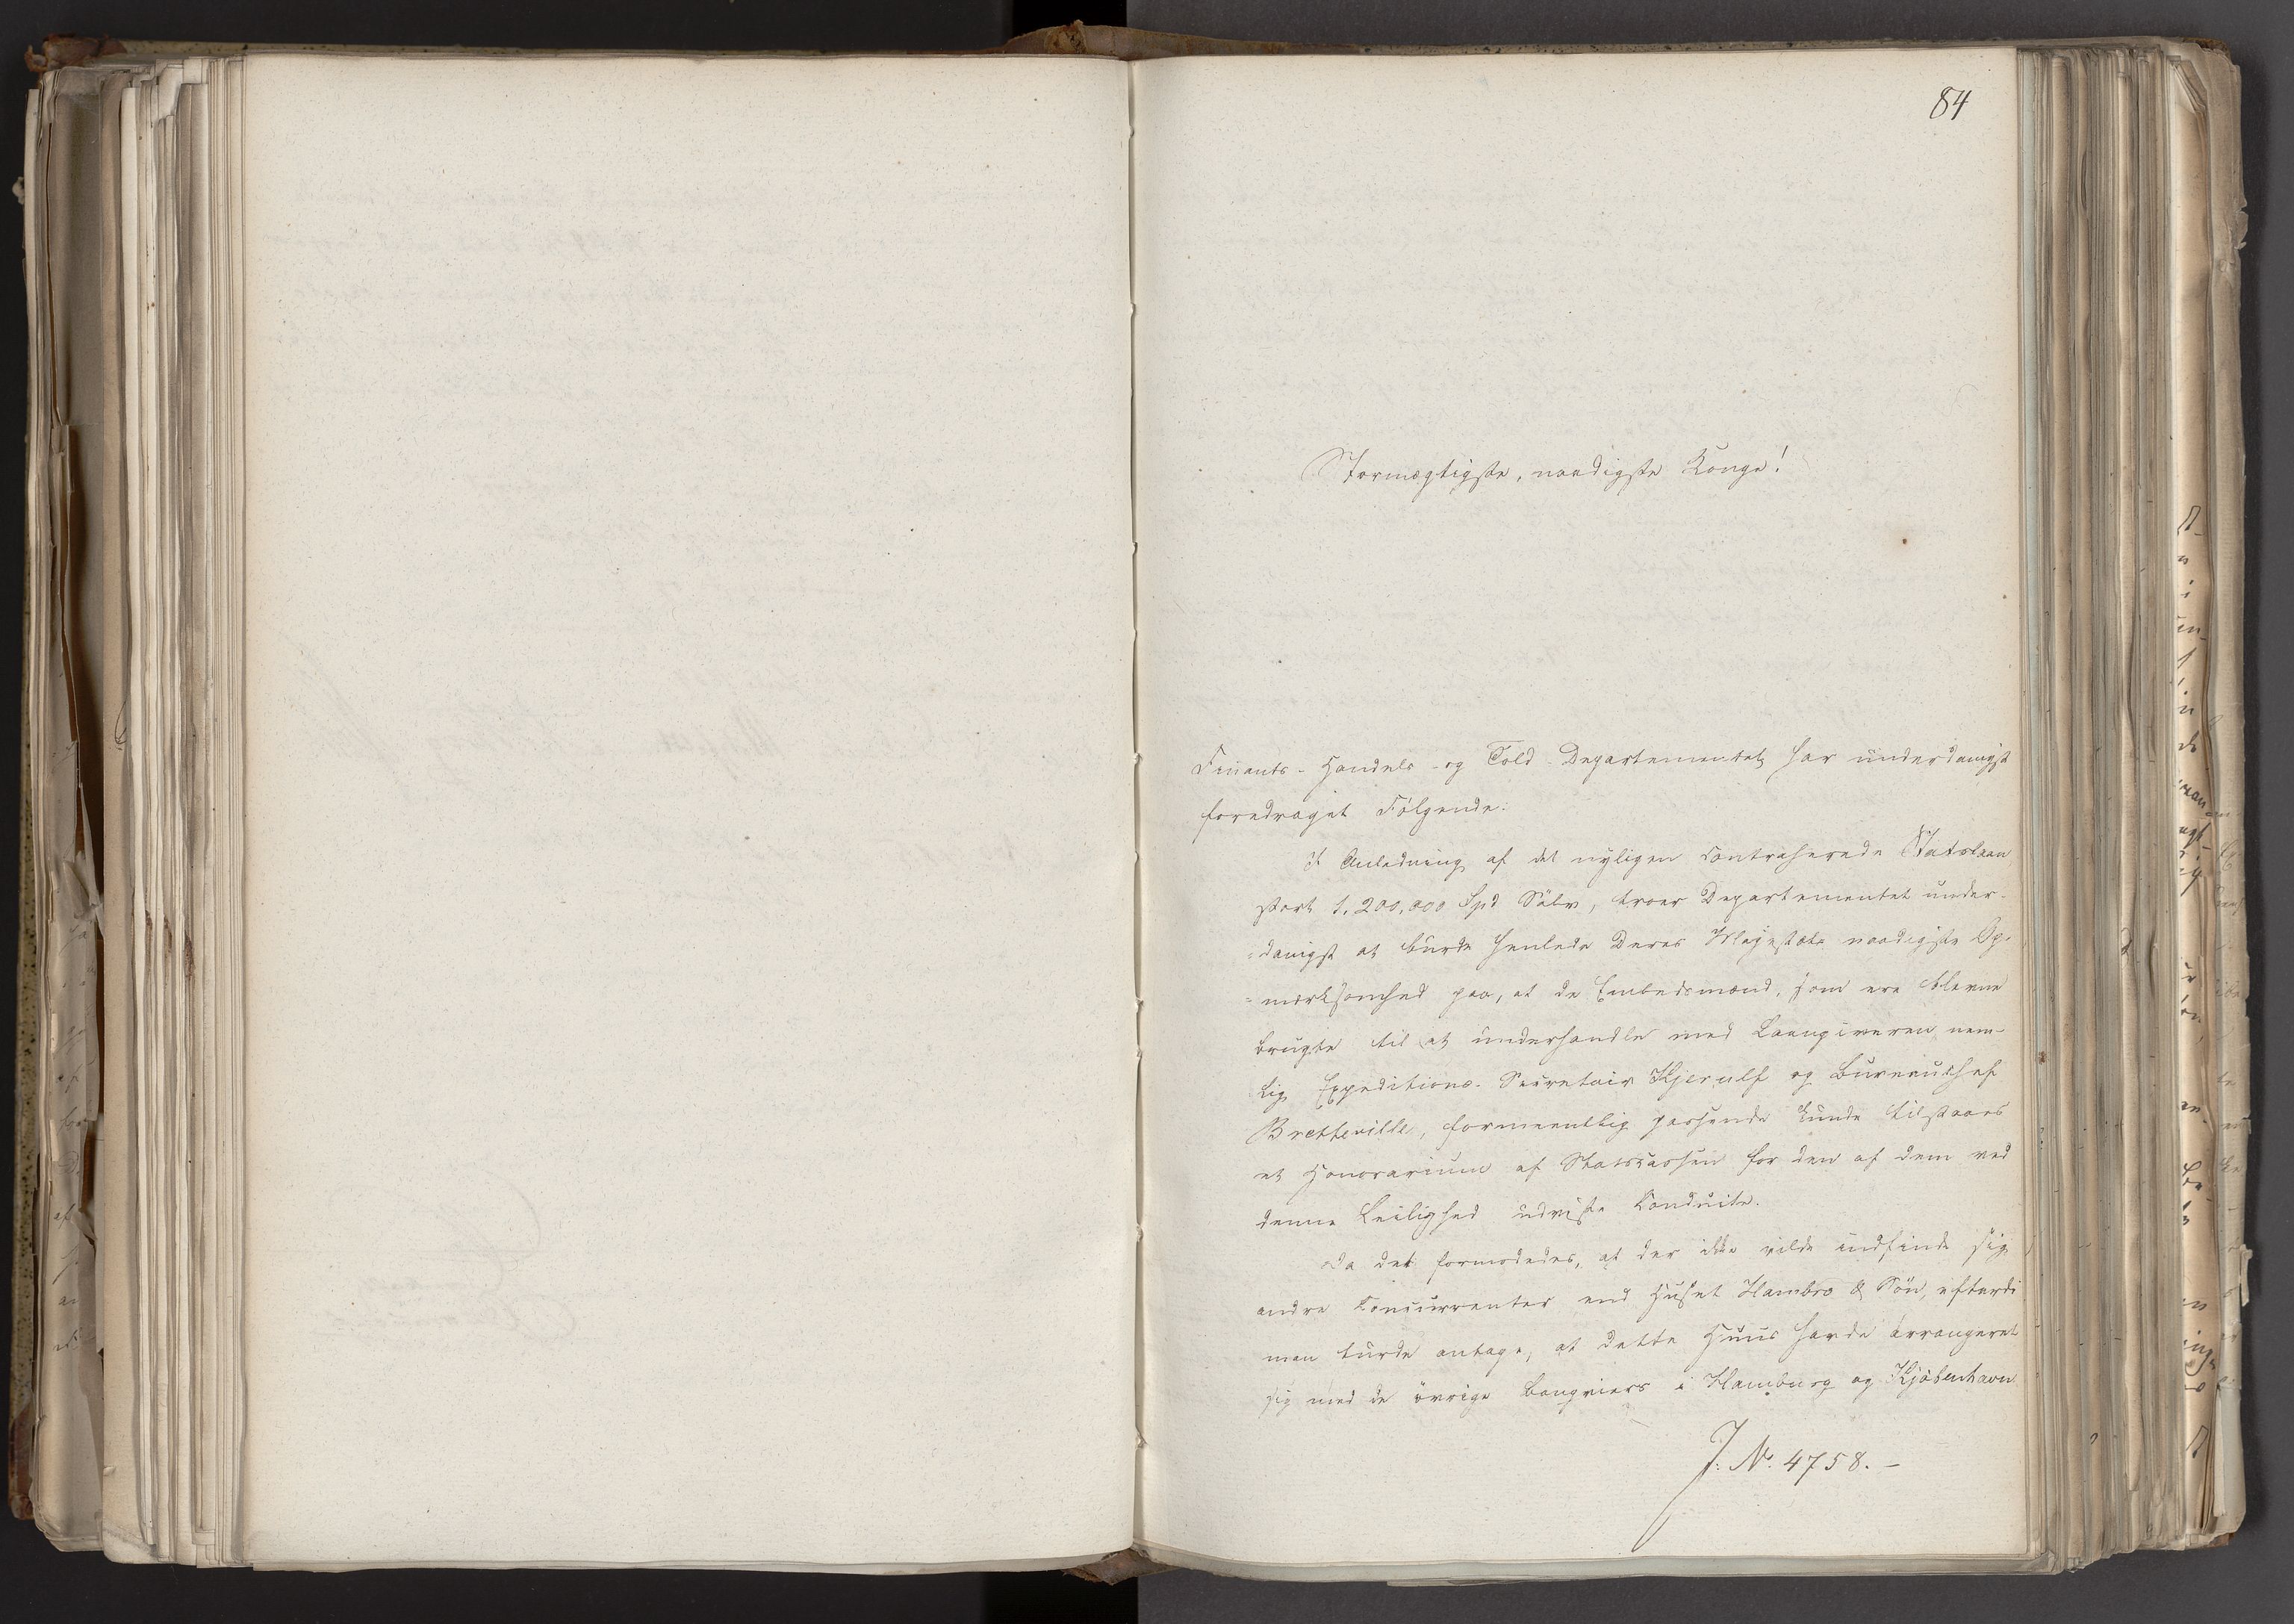 84
Stormægtigste, naadigste Konge!
Finants- Handels- og Told-Departementet har underdanigst
foredraget Følgende:
I Anledning af det nyligen contraherede Statslaan
stort 1.200,000 Spd Sölv, troer Departementet under-
=danigst at burde henlede Deres Majestæts naadigste Op-
=mærksomhed paa, at de Embedsmænd, som ere blevne
brugte til at underhandle med Laangiveren nem-
lig Expeditions-Secretair Kjerulf og Bureauchef
Bretteville, formeentlig passende kunde tilstaaes
et Honorarium af Statscassen for den af dem ved
denne Leilighed udviste Conduite.
Da det formodedes, at der ikke vilde indfinde sig
andre Concurrenter end Huset Hambro & Sön, efterdi
man turde antage, at dette Huus havde arrangeret
sig med de övrige Banqviers i Hamburg og Kjöbenhavn
J. No. 4758.-